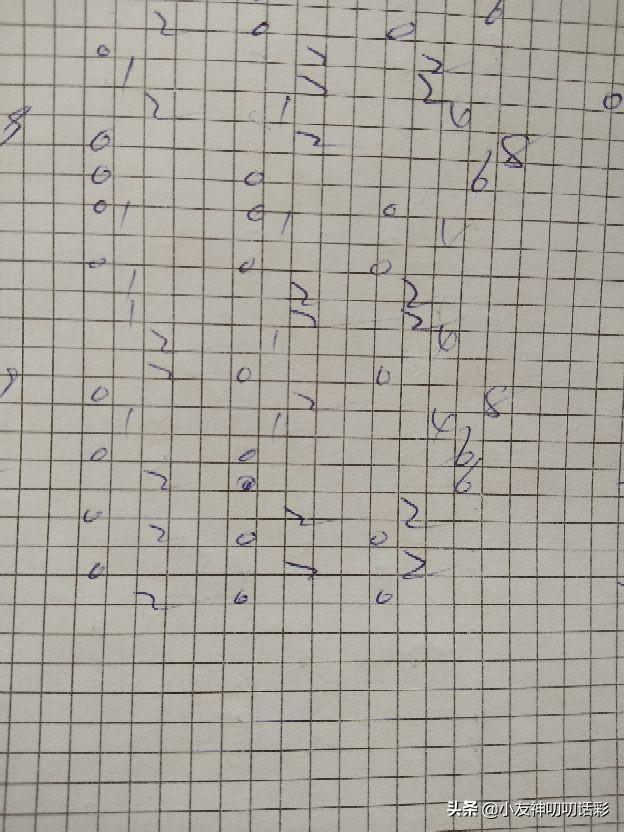 6
2 0 0
0 2 2
1 2 2
2 1 4 0
0 2 8
0 0 6
0 1 0 1 0
0 0 0
1 2 2
1 2 2
2 1 4
2 0 0
0 2 8
1 1 4
0 0 6
2 0 6
0 2 2
2 0 0
0 2 2
2 0 0
头条 @小友神叨叨话彩